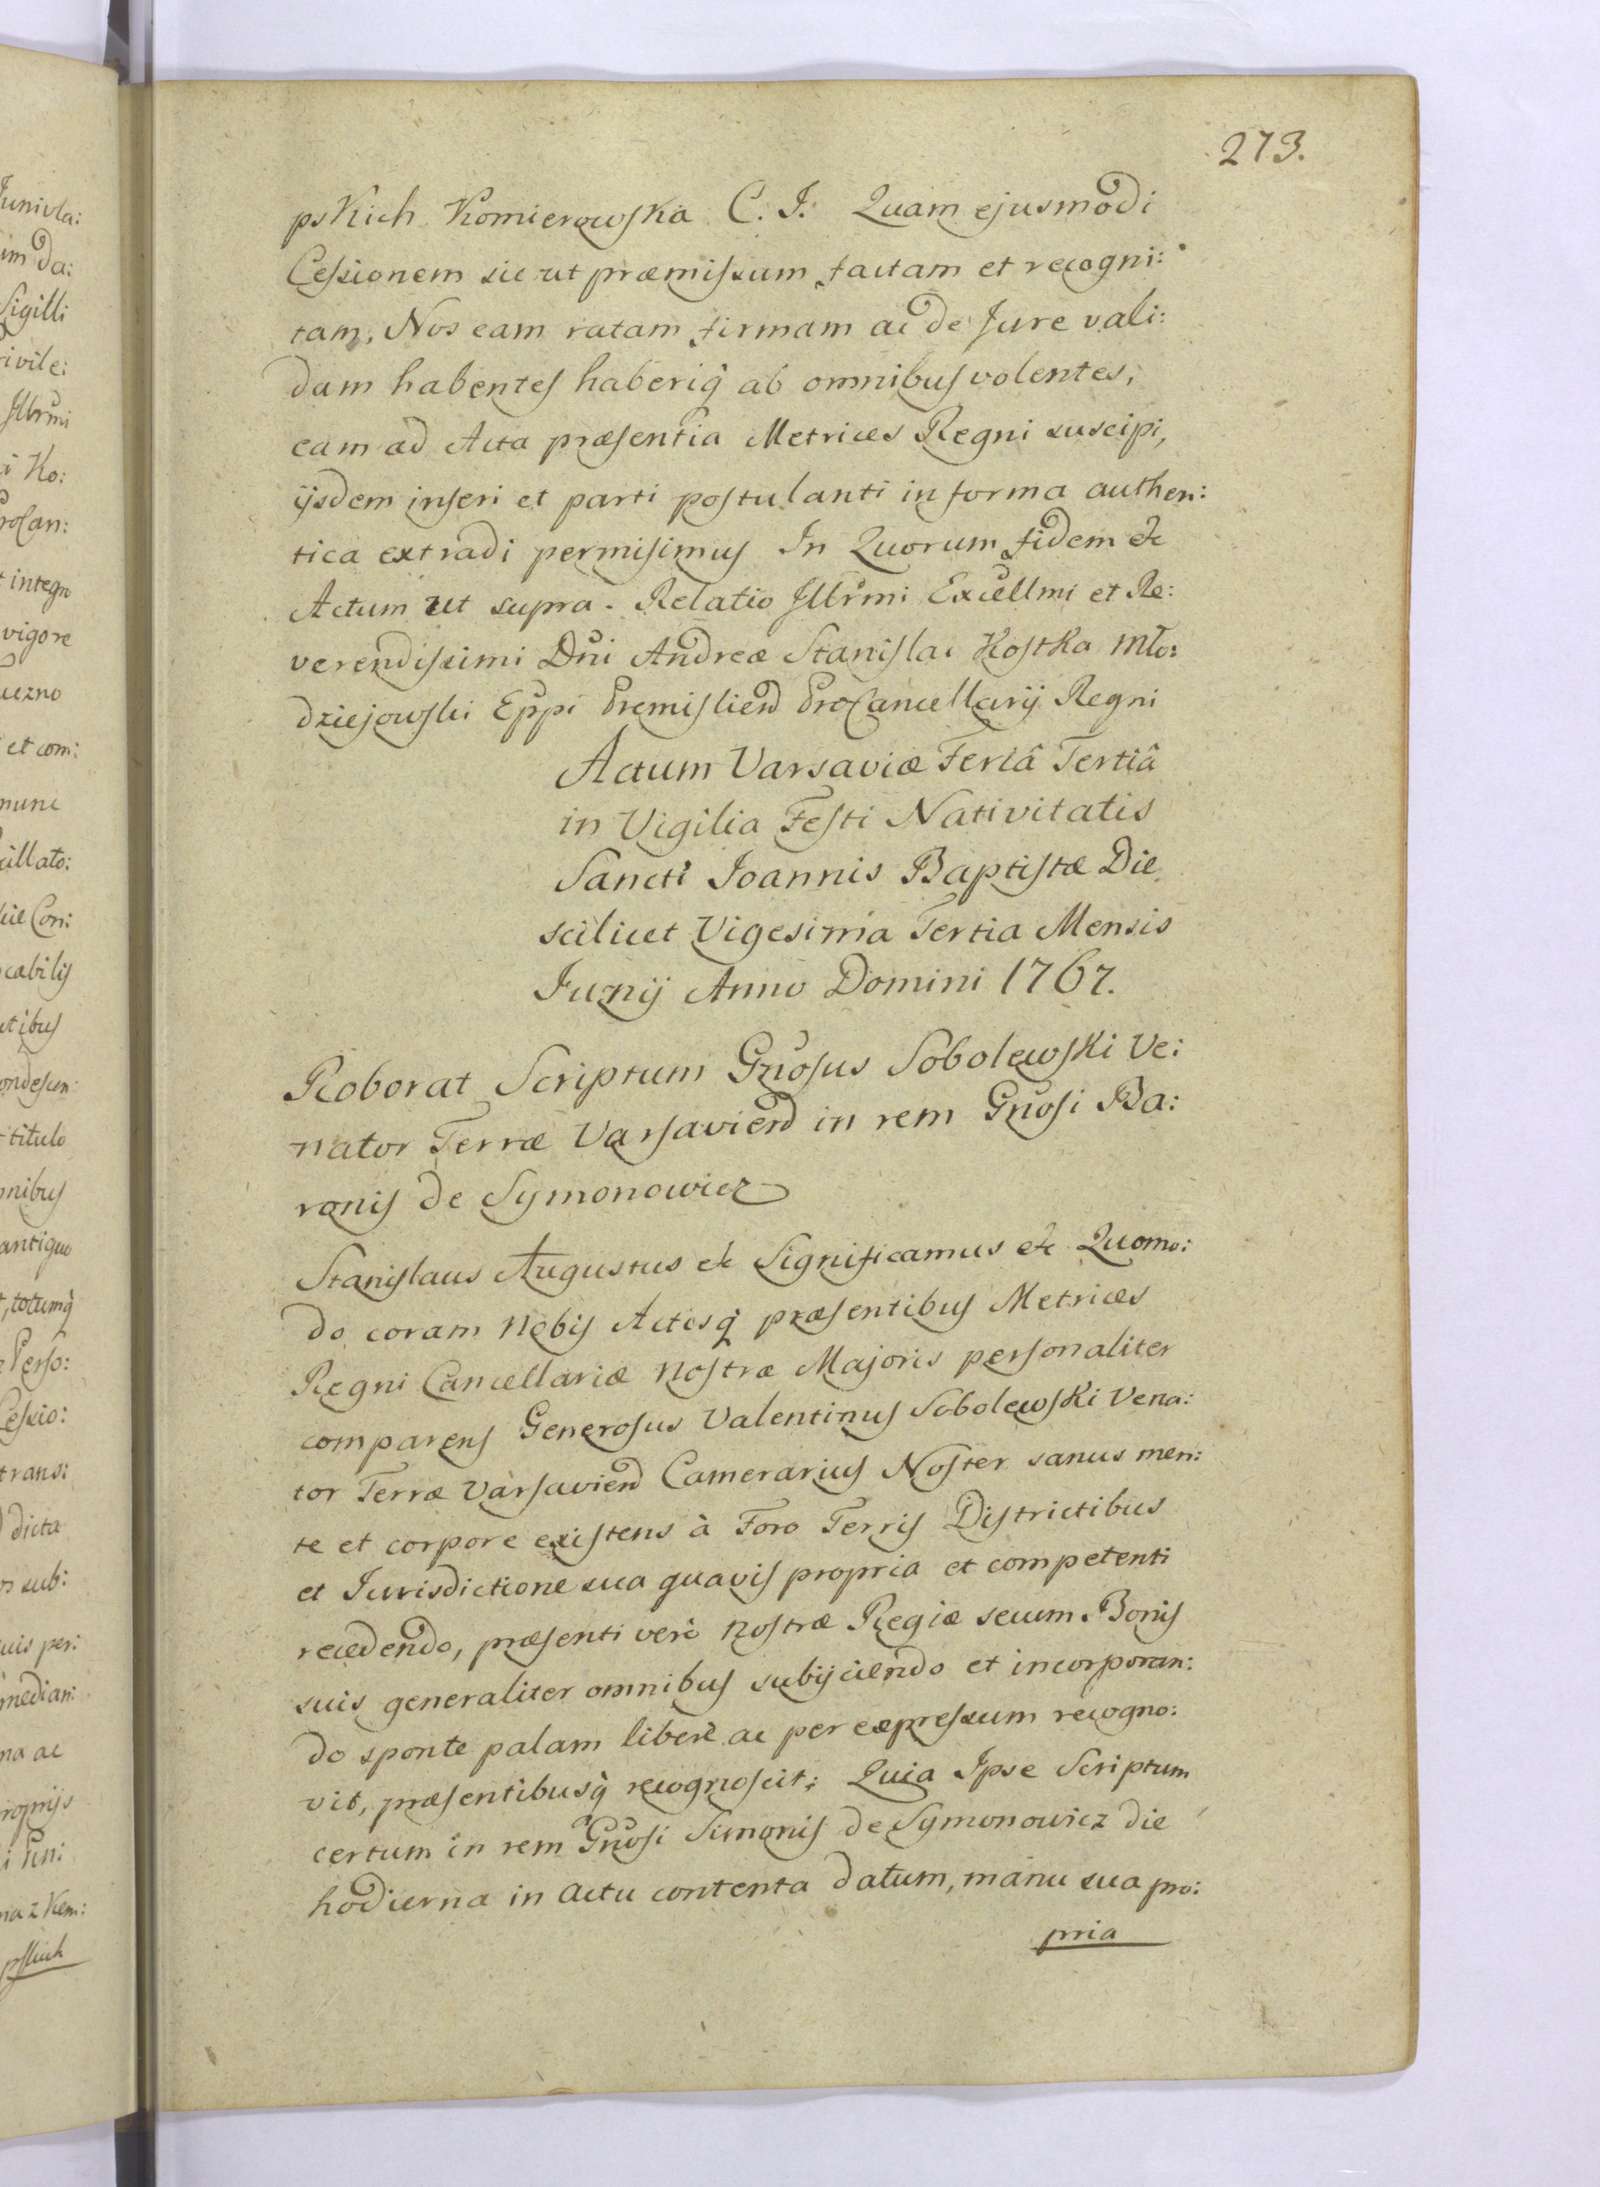 273.
pskich Komierowska C. I. Quam ejusmodi
Cessionem sic ut præmissum factam et recogni:
tam, Nos eam ratam firmam ac de Jure vali:
dam habentes haberiq̃ ab omnibus volentes,
eam ad Acta præsentia Metrices Regni suscipi,
ijsdem inseri et parti postulanti in forma authen:
tica extradi permisimus In Quorum fidem etc
Actum ut supra. Relatio Illrmi Excellmi et Re:
verendissimi Dni Andreæ Stanislai Kostka Mło:
dziejowski Eppi Premislien Procancellarij Regni
Actum Varsaviæ Feriâ Tertiâ
in Vigilia Festi Nativitatis
Sancti Joannis Baptistæ Die
scilicet Vigesima Tertia Mensis
Junij Anno Domini 1767.
Roborat Scriptum Gnosus Sobolewski Ve:
nator Terræ Varsavien in rem Gnosi Ba:
ronis de Symonowicz
Stanislaus Augustus etc Significamus etc Quomo:
do coram Nobis Actisq̃ præsentibus Metrices
Regni Cancellariæ Nostræ Majoris personaliter
comparens Generosus Valentinus Sobolewski Vena:
tor Terræ Varsavien Camerarius Noster sanus men:
te et corpore existens à Foro Terris Districtibus
et Jurisdictione sua quavis propria et competenti
recedendo, præsenti verò Nostræ Regiæ secum Bonis
suis generaliter omnibus subijciendo et incorporan:
do sponte palam liberè ac per expressum recogno:
vit, præsentibusq̃ recognoscit; Quia Ipse Scriptum
certum in rem Gnosi Simonis de Symonowicz die
hodierna in actu contenta datum, manu sua pro:
pria